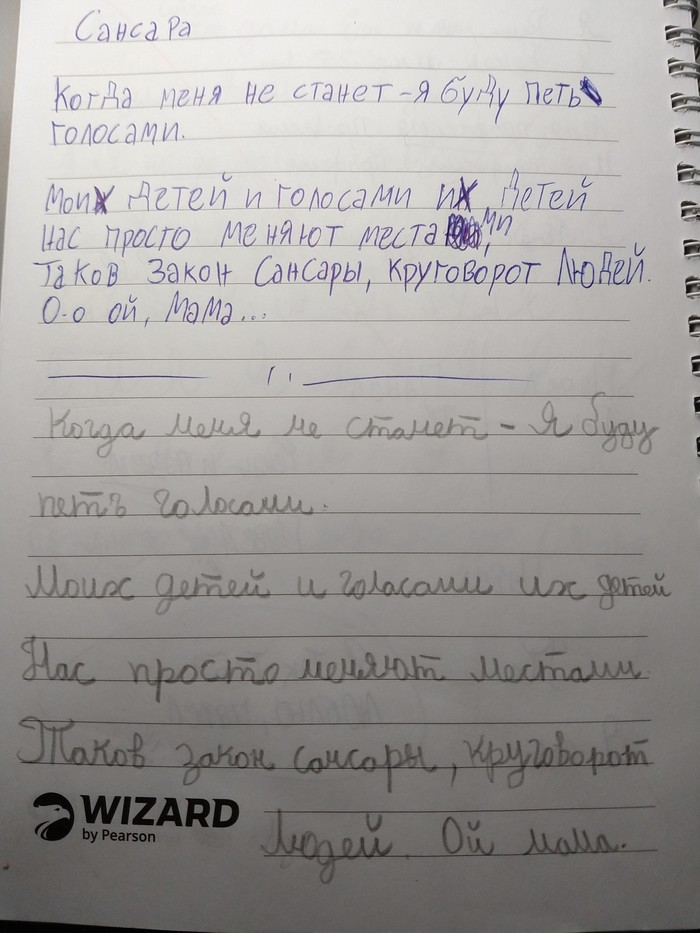 Сансара
Когда меня не станет - я буду петь
голосами.
Моих детей и голосами их детей
Нас просто меняют местами,
Таков закон Сансары, круговорот людей.
О-о ой, мама...
Когда меня не станет - Я буду
петь голосами.
Моих детей и голасами их детей
Нас просто меняют местами.
Таков закон сансары, круговорот
WIZARD
by Pearson
людей. Ой мама.